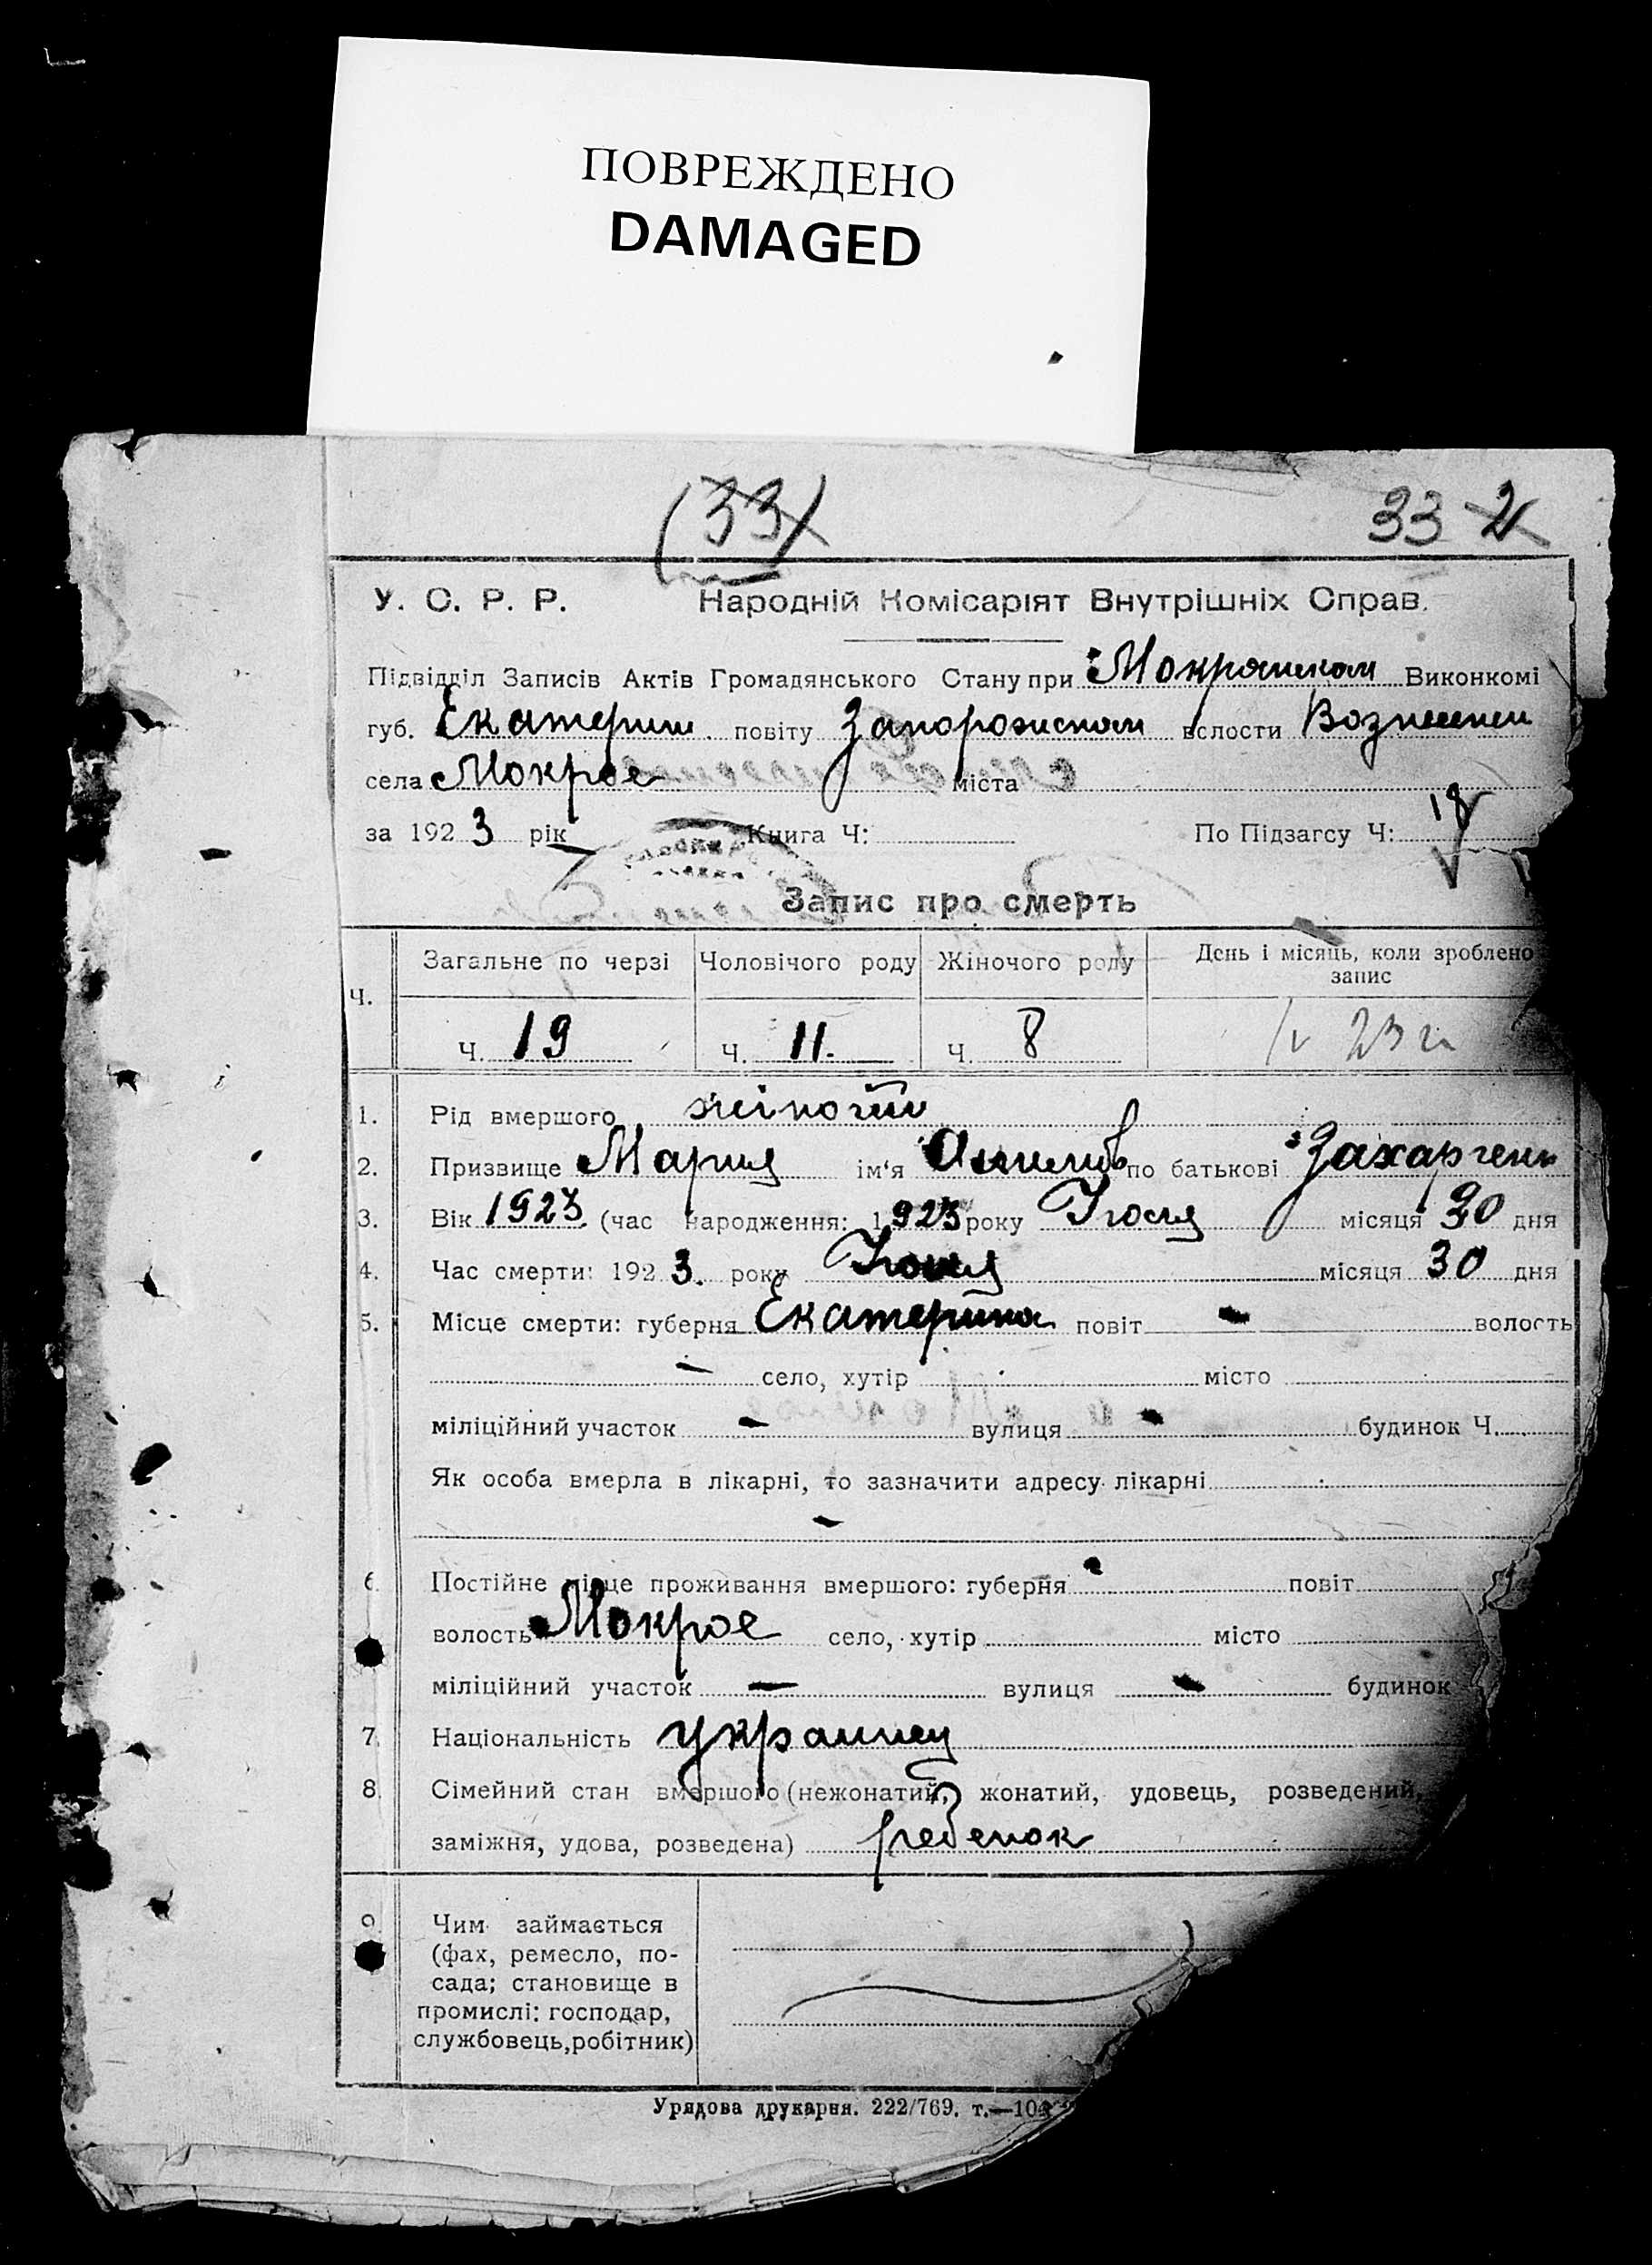 ПОВРЕЖДЕНО
DAMAGED
(33) 33 2
У. С. Р. Р. Народній Комісаріят Внутрішніх Справ.
Підвідділ Записів Актів Громадянського Стану при Мокрянском Виконкомі
губ. Екатерин. повіту Запорожском волости Вознесен
села Мокрое міста
за 1923 рік Книга Ч: По Підзагсу Ч: 18
Запис про смерть
Ч. Загальне по черзі Чоловічого роду Жіночого роду День і місяць, коли зроблено запис
Ч. 19 Ч. 11. Ч. 8 23 г
1. Рід вмершого жіночий
2. Призвище Мария ім'я по батькові Захарченк
3. Вік 1923. (час народження: 1923 року місяця 30 дня
4. Час смерти: 1923. року місяця 30 дня
5. Місце смерти: губерня Екатерина повіт - волость
- село, хутір місто
міліційний участок - вулиця - будинок Ч.
Як особа вмерла в лікарні, то зазначити адресу лікарні
-
6. Постійне місце проживання вмершого: губерня повіт
волость Мокрое село, хутір місто
міліційний участок — вулиця - будинок
7. Національність украинец
8. Сімейний стан вмершого (нежонатий, жонатий, удовець, розведений,
заміжня, удова, розведена) ребенок
9. Чим займається
(фах, ремесло, по-
сада; становище в
промислі: господар,
службовець,робітник)
Урядова друкарня. 222/769. т.—10